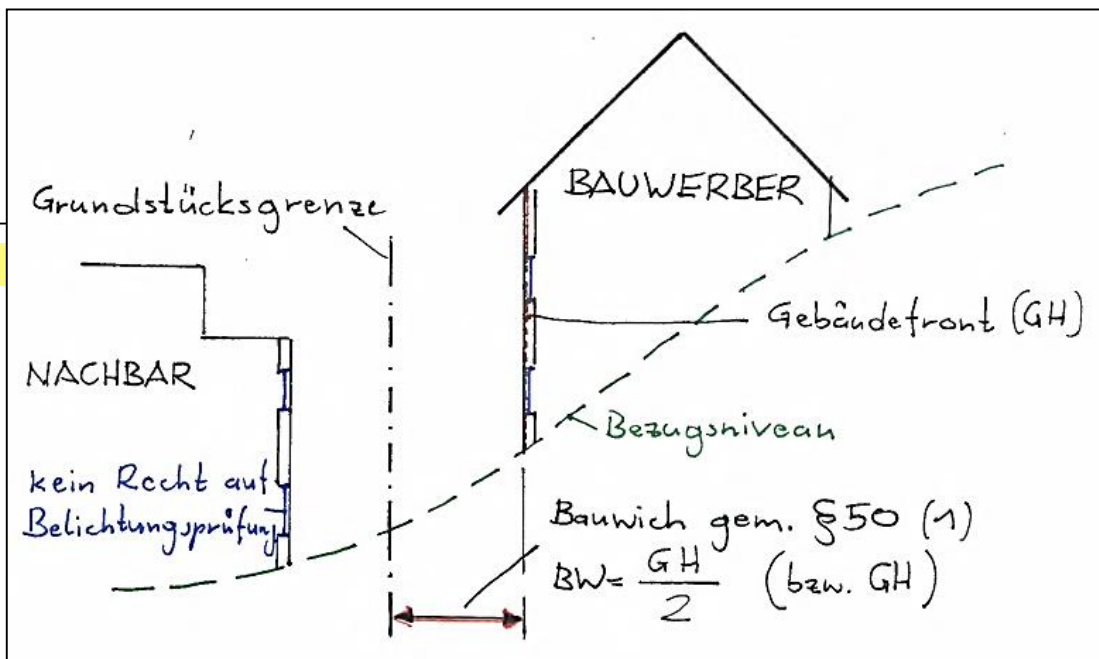 Grundstücksgrenze
BAUWERBER
Gebäudefront (GH)
NACHBAR
Bezugsniveau
kein Recht auf
Belichtungsprüfung
Bauwich gem. §50 (1)
BW= GH/2 (bzw. GH)